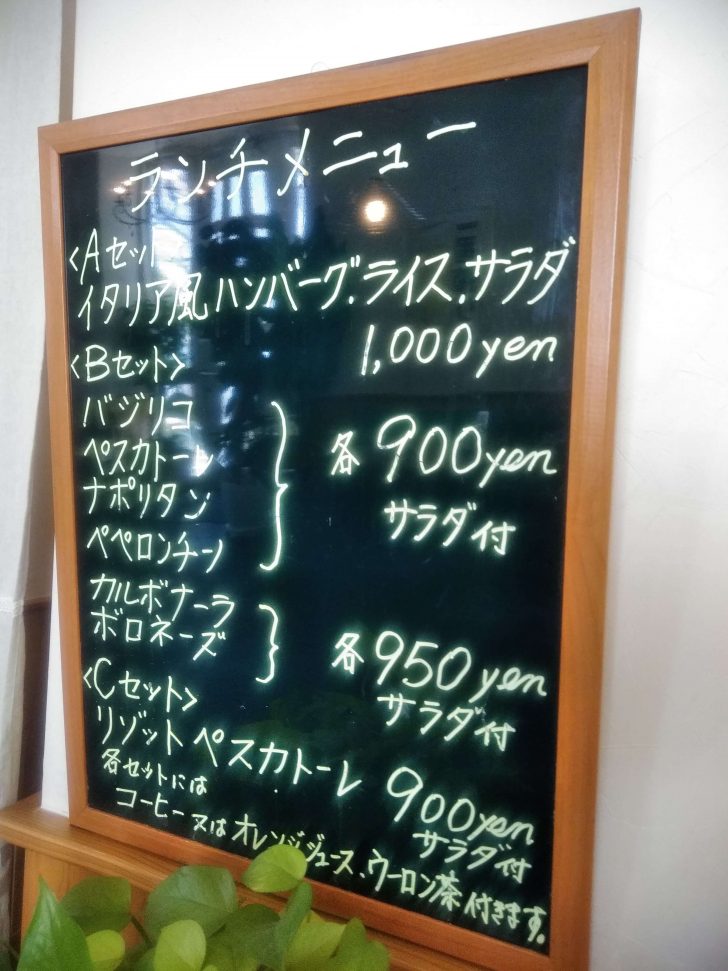 ランチメニュー
<Aセット>
イタリア風ハンバーグ.ライス.サラダ
1,000yen
<Bセット>
バジリコ
ペスカトーレ
ナポリタン
ペペロンチーノ
各900yen
サラダ付
カルボナーラ
ボロネーズ
各950yen
サラダ付
<Cセット>
リゾットペスカトーレ 900yen
サラダ付
各セットには
コーヒー又はオレンジジュース、ウーロン茶付きます。